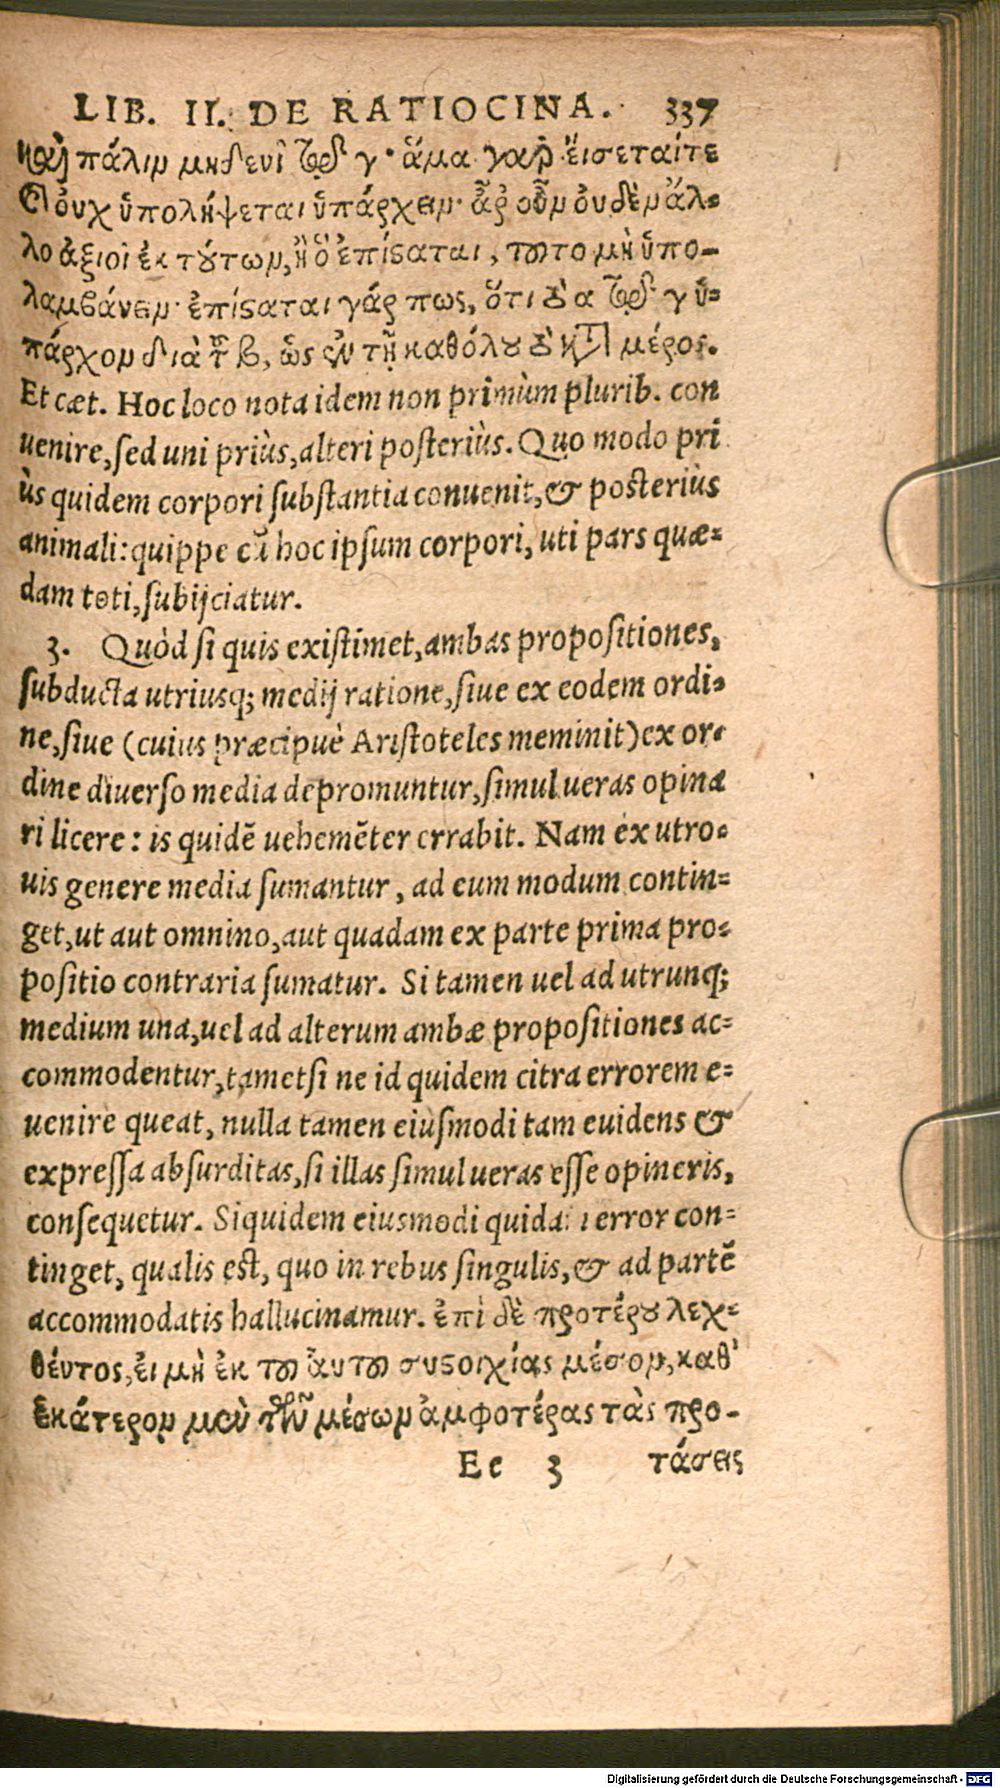 LIB. II. DE RATIOCINA. 337
καὶ πάλιν μηδενὶ τῶν γ· ἅμα γὰρ εἴσεταί τε
καὶ οὐχ ὑπολήψεται ὑπάρχειν· ἆρ οὖν οὐδὲν ἄλ-
λο ἀξιοῖ ἐκ τούτων, ἢ ὃ ἐπίσταται, τοῦτο μὴ ὑπο-
λαμβάνειν· ἐπίσταται γάρ πως, ὅτι τὸ α τῶν γ ὑ-
πάρχον διὰ τοῦ β, ὡς ἐν τῇ καθόλου τὸ κατὰ μέρος.
Et cæt. Hoc loco nota idem non primùm plurib. con
uenire, sed uni priùs, alteri posteriùs. Quo modo pri
ùs quidem corpori substantia conuenit, & posteriùs
animali: quippe cū hoc ipsum corpori, uti pars quæ-
dam toti, subijciatur.
3. Quòd si quis existimet, ambas propositiones,
subducta utriusq; medij ratione, siue ex eodem ordi-
ne, siue (cuius præcipuè Aristoteles meminit) ex or-
dine diuerso media depromuntur, simul ueras opina
ri licere: is quidē uehemēter errabit. Nam ex utro-
uis genere media sumantur, ad eum modum contin-
get, ut aut omnino, aut quadam ex parte prima pro-
positio contraria sumatur. Si tamen uel ad utrunq;
medium una, uel ad alterum ambæ propositiones ac-
commodentur, tametsi ne id quidem citra errorem e-
uenire queat, nulla tamen eiusmodi tam euidens &
expressa absurditas, si illas simul ueras esse opineris,
consequetur. Siquidem eiusmodi error con-
tinget, qualis est, quo in rebus singulis, & ad partē
accommodatis hallucinamur. ἐπὶ δὲ προτέρου λεχ-
θέντος, εἰ μὴ ἐκ τοῦ αὐτοῦ συστοιχίας μέσον, καθ'
ἑκάτερον μὲν τῶν μέσων ἀμφοτέρας τὰς προ-
Ee 3 τάσεις
Digitalisierung gefördert durch die Deutsche Forschungsgemeinschaft - DFG